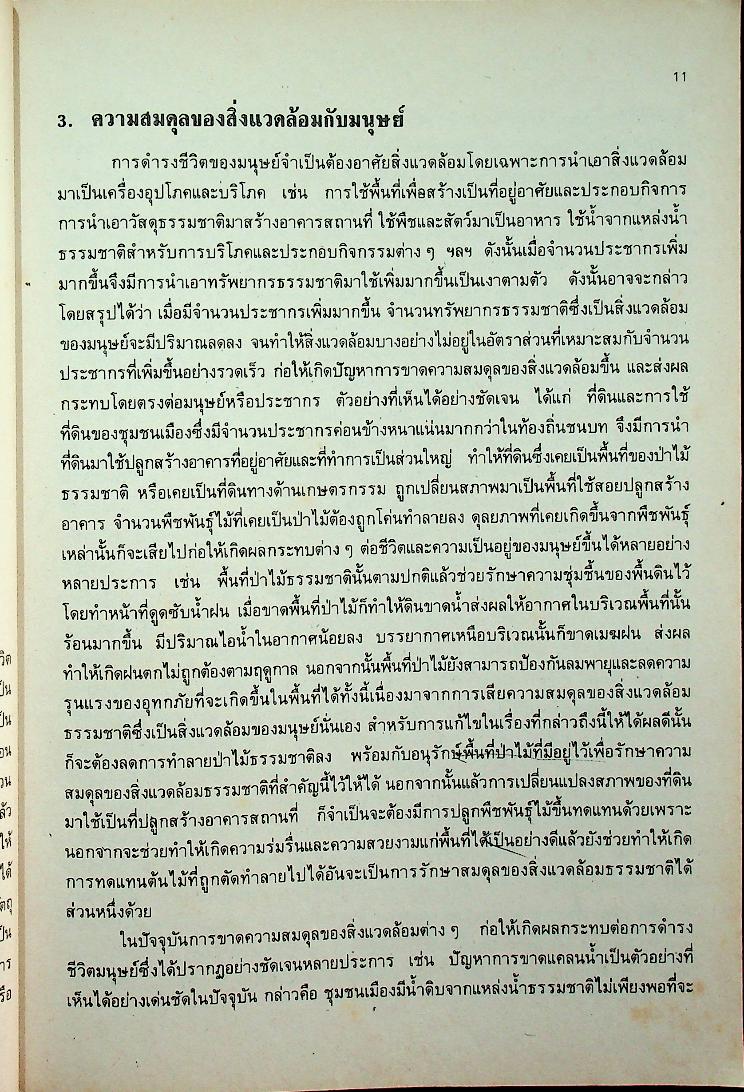 11
3. ความสมดุลของสิ่งแวดล้อมกับมนุษย์
การดำรงชีวิตของมนุษย์จำเป็นต้องอาศัยสิ่งแวดล้อมโดยเฉพาะการนำเอาสิ่งแวดล้อม
มาเป็นเครื่องอุปโภคและบริโภค เช่น การใช้พื้นที่เพื่อสร้างเป็นที่อยู่อาศัยและประกอบกิจการ
การนำเอาวัสดุธรรมชาติมาสร้างอาคารสถานที่ ใช้พืชและสัตว์มาเป็นอาหาร ใช้น้ำจากแหล่งน้ำ
ธรรมชาติสำหรับการบริโภคและประกอบกิจกรรมต่าง ๆ ฯลฯ ดังนั้นเมื่อจำนวนประชากรเพิ่ม
มากขึ้นจึงมีการนำเอาทรัพยากรธรรมชาติมาใช้เพิ่มมากขึ้นเป็นเงาตามตัว ดังนั้นอาจจะกล่าว
โดยสรุปได้ว่า เมื่อมีจำนวนประชากรเพิ่มมากขึ้น จำนวนทรัพยากรธรรมชาติซึ่งเป็นสิ่งแวดล้อม
ของมนุษย์จะมีปริมาณลดลง จนทำให้สิ่งแวดล้อมบางอย่างไม่อยู่ในอัตราส่วนที่เหมาะสมกับจำนวน
ประชากรที่เพิ่มขึ้นอย่างรวดเร็ว ก่อให้เกิดปัญหาการขาดความสมดุลของสิ่งแวดล้อมขึ้น และส่งผล
กระทบโดยตรงต่อมนุษย์หรือประชากร ตัวอย่างที่เห็นได้อย่างชัดเจน ได้แก่ ที่ดินและการใช้
ที่ดินของชุมชนเมืองซึ่งมีจำนวนประชากรค่อนข้างหนาแน่นมากกว่าในท้องถิ่นชนบท จึงมีการนำ
ที่ดินมาใช้ปลูกสร้างอาคารที่อยู่อาศัยและที่ทำการเป็นส่วนใหญ่ ทำให้ที่ดินซึ่งเคยเป็นพื้นที่ของป่าไม้
ธรรมชาติ หรือเคยเป็นที่ดินทางด้านเกษตรกรรม ถูกเปลี่ยนสภาพมาเป็นพื้นที่ใช้สอยปลูกสร้าง
อาคาร จำนวนพืชพันธุ์ไม้ที่เคยเป็นป่าไม้ต้องถูกโค่นทำลายลง ดุลยภาพที่เคยเกิดขึ้นจากพืชพันธุ์
เหล่านั้นก็จะเสียไปก่อให้เกิดผลกระทบต่าง ๆ ต่อชีวิตและความเป็นอยู่ของมนุษย์ขึ้นได้หลายอย่าง
หลายประการ เช่น พื้นที่ป่าไม้ธรรมชาตินั้นตามปกติแล้วช่วยรักษาความชุ่มชื้นของพื้นดินไว้
โดยทำหน้าที่ดูดซับน้ำฝน เมื่อขาดพื้นที่ป่าไม้ก็ทำให้ดินขาดน้ำส่งผลให้อากาศในบริเวณพื้นที่นั้น
ร้อนมากขึ้น มีปริมาณไอน้ำในอากาศน้อยลง บรรยากาศเหนือบริเวณนั้นก็ขาดเมฆฝน ส่งผล
ทำให้เกิดฝนตกไม่ถูกต้องตามฤดูกาล นอกจากนั้นพื้นที่ป่าไม้ยังสามารถป้องกันลมพายุและลดความ
รุนแรงของอุทกภัยที่จะเกิดขึ้นในพื้นที่ได้ทั้งนี้เนื่องมาจากการเสียความสมดุลของสิ่งแวดล้อม
ธรรมชาติซึ่งเป็นสิ่งแวดล้อมของมนุษย์นั่นเอง สำหรับการแก้ไขในเรื่องที่กล่าวถึงนี้ให้ได้ผลดีนั้น
ก็จะต้องลดการทำลายป่าไม้ธรรมชาติลง พร้อมกับอนุรักษ์พื้นที่ป่าไม้ที่มีอยู่ไว้เพื่อรักษาความ
สมดุลของสิ่งแวดล้อมธรรมชาติที่สำคัญนี้ไว้ให้ได้ นอกจากนั้นแล้วการเปลี่ยนแปลงสภาพของที่ดิน
มาใช้เป็นที่ปลูกสร้างอาคารสถานที่ ก็จำเป็นจะต้องมีการปลูกพืชพันธุ์ไม้ขึ้นทดแทนด้วยเพราะ
นอกจากจะช่วยทำให้เกิดความร่มรื่นและความสวยงามแก่พื้นที่ได้เป็นอย่างดีแล้วยังช่วยทำให้เกิด
การทดแทนต้นไม้ที่ถูกตัดทำลายไปได้อันจะเป็นการรักษาสมดุลของสิ่งแวดล้อมธรรมชาติได้
ส่วนหนึ่งด้วย
ในปัจจุบันการขาดความสมดุลของสิ่งแวดล้อมต่าง ๆ ก่อให้เกิดผลกระทบต่อการดำรง
ชีวิตมนุษย์ซึ่งได้ปรากฏอย่างชัดเจนหลายประการ เช่น ปัญหาการขาดแคลนน้ำเป็นตัวอย่างที่
เห็นได้อย่างเด่นชัดในปัจจุบัน กล่าวคือ ชุมชนเมืองมีน้ำดิบจากแหล่งน้ำธรรมชาติไม่เพียงพอที่จะ